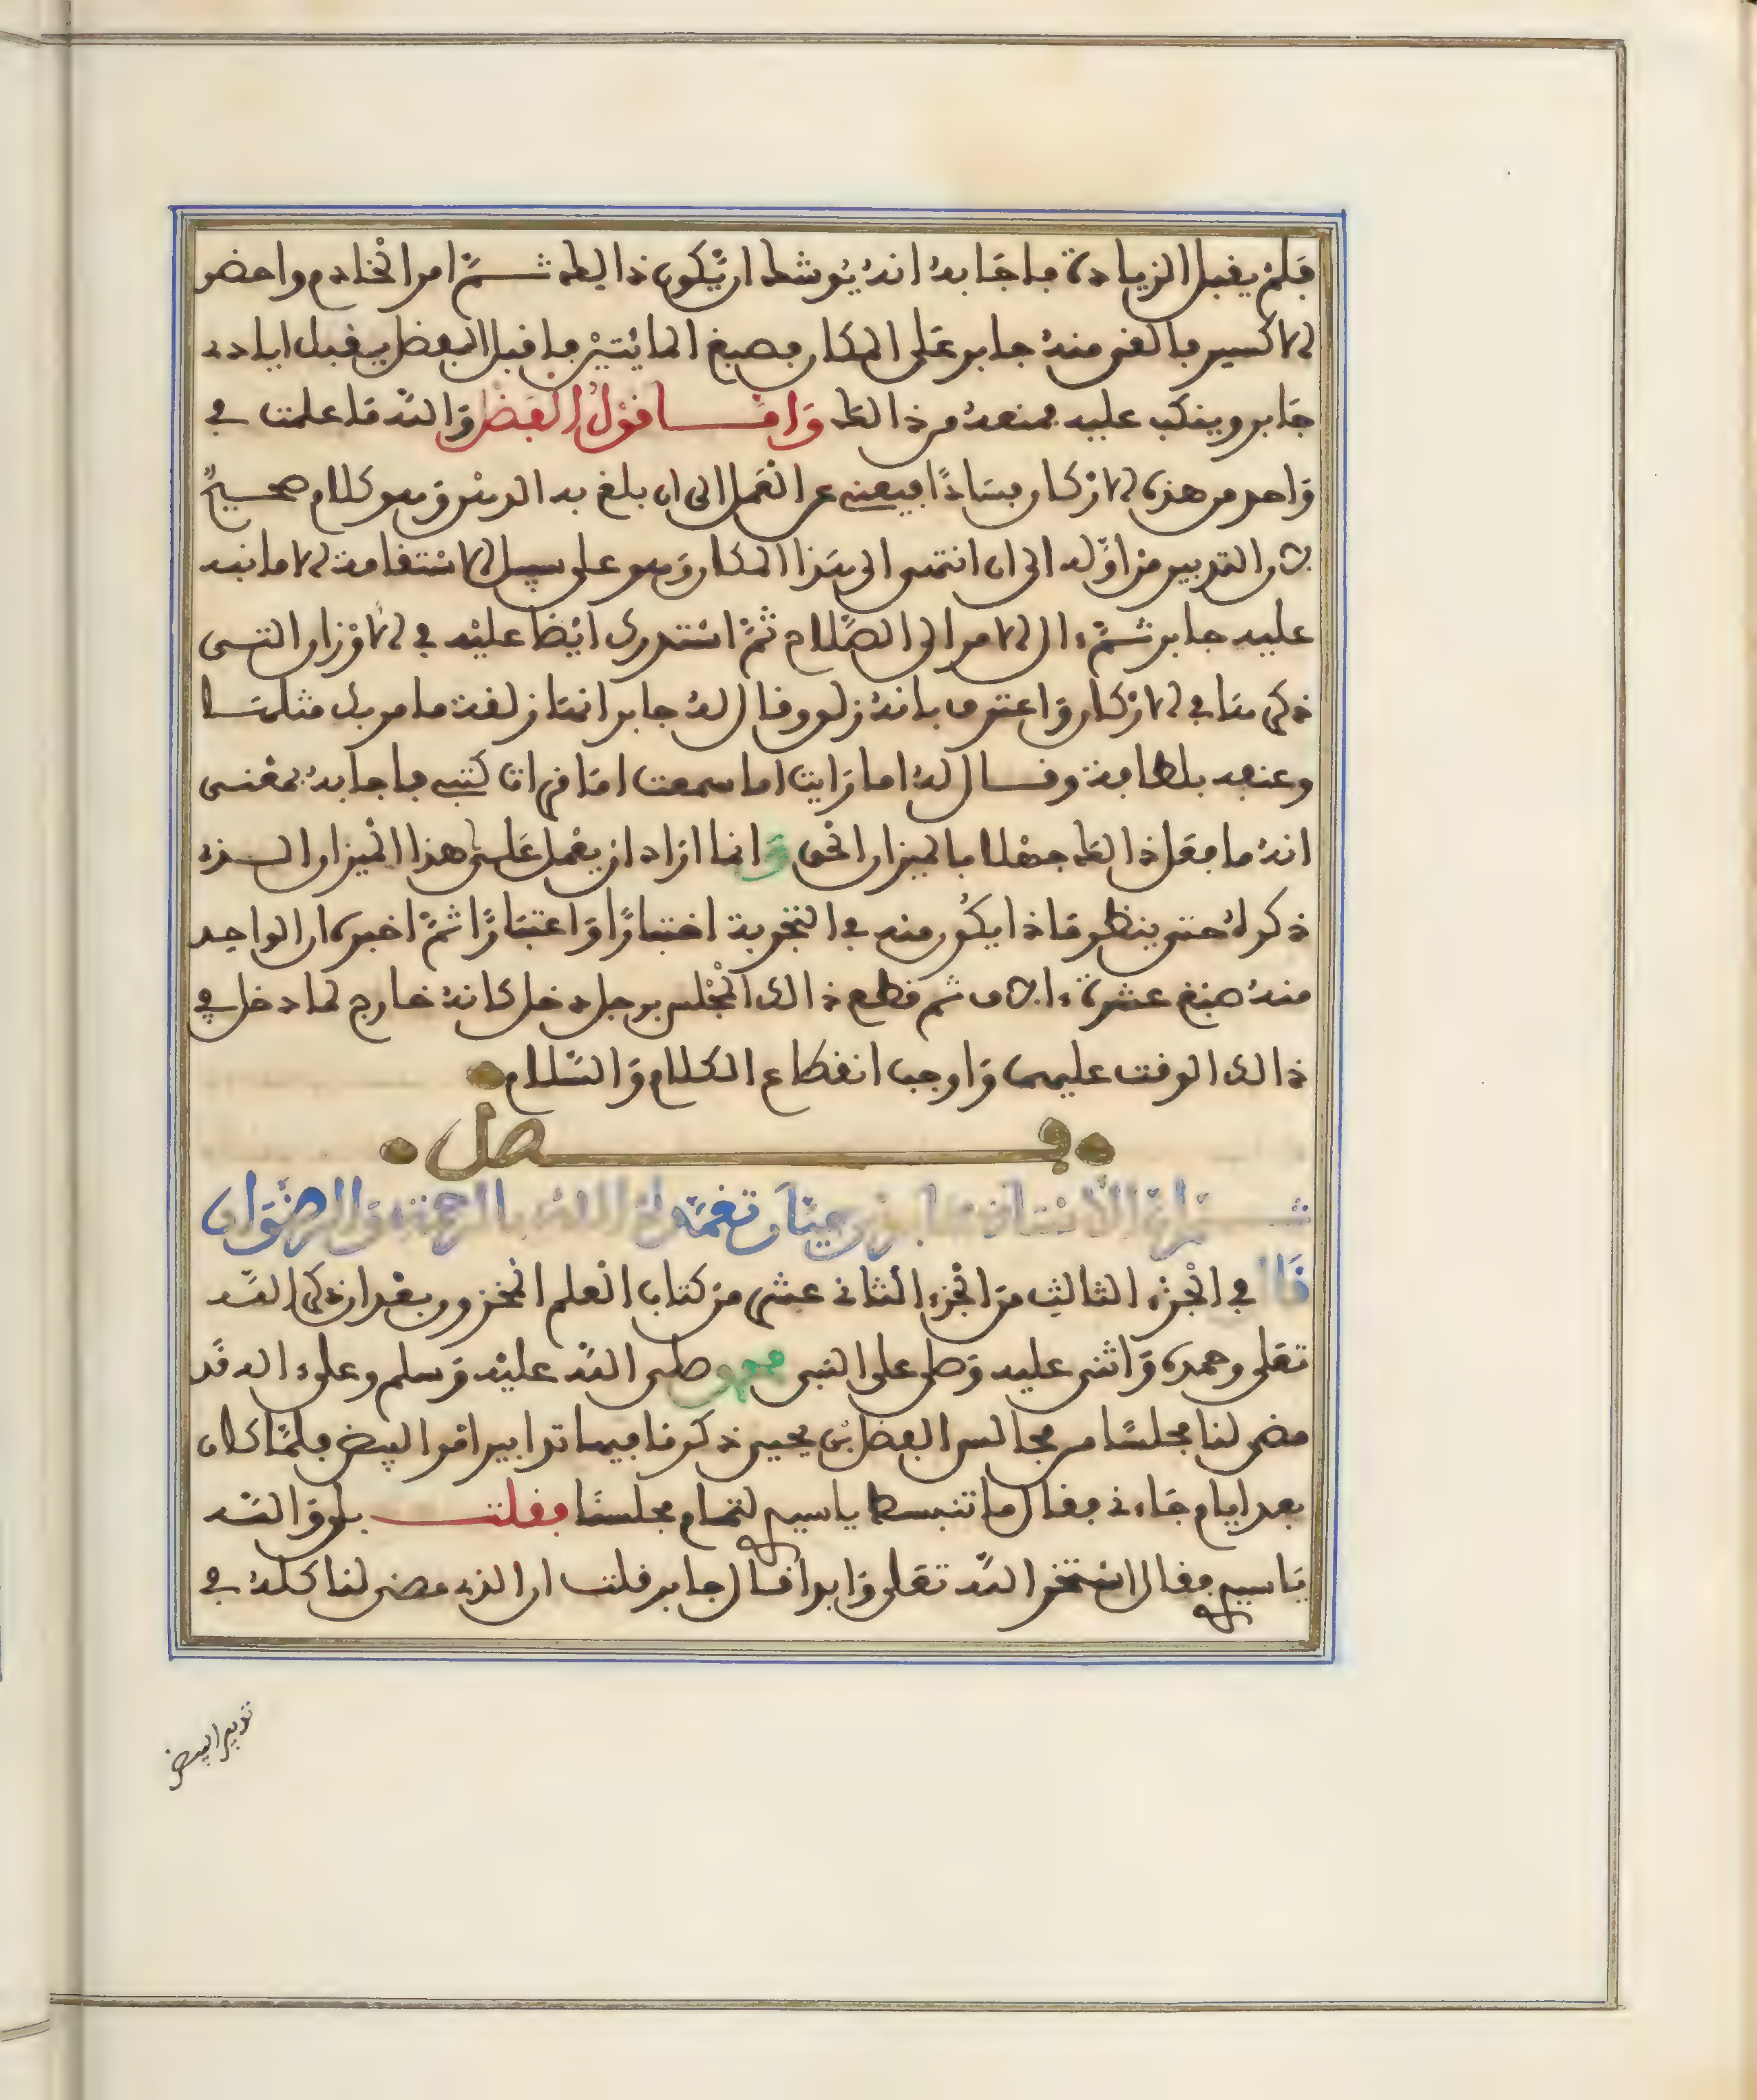 فلم يقبل الزيادة فاجابه انه يوشك ان يكون ذالك ثم امر الخادم واحضر
الاكسير فالقى منه جابر على المكان فصبغ المائتين فاقبل الفضل يقبل ايادي
جابر وينكب عليه فمنعه من ذالك وَامّا قولُ الفضل والله ما علمت في
واحد من هذه الاركان فسادًا فيعني عن العمل الى ان بلغ به الوهن وهو كلام صحيح
لان التدبير من اوله الى ان انتهى الى هذا المكان وهو على سبيل الاستقامة الا ما نبه
عليه جابر ثم ءال الامر الى الصلاح ثم استدرك ايضا عليه في الاوزان التي
ذكرها في الاركان واعترف بانه زلل وقال له جابر انها زلقة ما من بك مثلها
وعنفه بلطافة وقال له اما رايت اما سمعت اما قرات كتبي فاجابه بمعنى
انه ما فعل ذالك جهلا بالميزان الحق وانما اراد ان يعمل على هذا الميزان الذي
ذكره حتى ينظر ماذا يكون منه في التجربة اختبارًا واعتبارًا ثم اخبره ان الواحد
منه صبغ عشرة ءالاف ثم قطع ذالك المجلس برجل دخل كانه خارج لما دخل في
ذالك الوقت عليهما واوجب انقطاع الكلام والسلام
فصل
قال في الجزء الثالث من الجزء الثاني عشر من كتاب العلم المخزون بعد ان ذكر الله
تعلى وحمده واثنى عليه وصلى على النبي محمد صلى الله عليه وسلم وعلى ءاله قد
مضى لنا مجلسًا من مجالس الفضل بن يحيى ذكرنا فيهما تدابير اقوا البيض فلما كان
بعد ايام جاءني فقال ما تنبسط يا سيدي لتمام مجلسنا فقلت بلى والله
يا سيدي فقال استخر الله تعلى وابدا قال جابر قلت ان الذي مضى لنا كله في
تدبير البيض